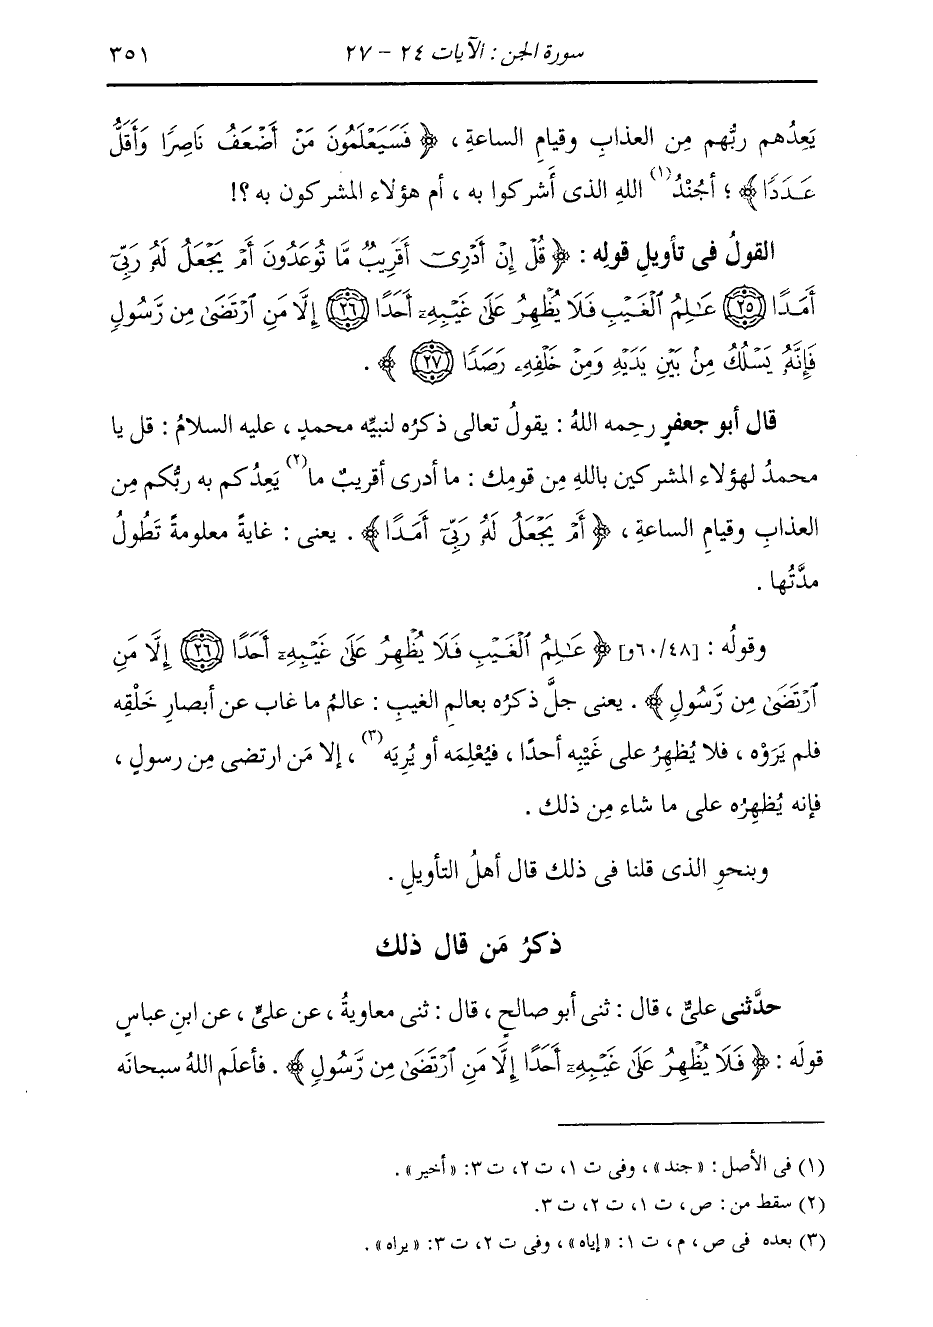 سورة الجن : الآيات ٢٤ - ٢٧ ٣٥١
يَعِدُهم ربُّهم مِن العذابِ وقيامِ الساعةِ ، ﴿ فَسَيَعْلَمُونَ مَنْ أَضْعَفُ نَاصِرًا وَأَقَلُّ
عَدَدًا ﴾ ؛ أجُنْدُ(١) اللهِ الذى أَشركوا به ، أم هؤلاء المشركون به ؟!
القولُ فى تأويلِ قولِه : ﴿ قُلْ إِنْ أَدْرِىٓ أَقَرِيبٌ مَّا تُوعَدُونَ أَمْ يَجْعَلُ لَهُۥ رَبِّىٓ
أَمَدًا ٢٥ عَـٰلِمُ ٱلْغَيْبِ فَلَا يُظْهِرُ عَلَىٰ غَيْبِهِۦٓ أَحَدًا ٢٦ إِلَّا مَنِ ٱرْتَضَىٰ مِن رَّسُولٍ
فَإِنَّهُۥ يَسْلُكُ مِنۢ بَيْنِ يَدَيْهِ وَمِنْ خَلْفِهِۦ رَصَدًا ٢٧ ﴾ .
قال أبو جعفرٍ رحِمه اللهُ : يقولُ تعالى ذكرُه لنبيِّه محمدٍ ، عليه السلامُ : قل يا
محمدُ لهؤلاء المشركين باللهِ مِن قومِك : ما أدرى أقريبٌ ما(٢) يَعِدُكم به ربُّكم مِن
العذابِ وقيامِ الساعةِ ، ﴿ أَمْ يَجْعَلُ لَهُۥ رَبِّىٓ أَمَدًا ﴾ . يعنى : غايةً معلومةً تَطُولُ
مدَّتُها .
وقولُه : [٦٠/٤٨و] ﴿ عَـٰلِمُ ٱلْغَيْبِ فَلَا يُظْهِرُ عَلَىٰ غَيْبِهِۦٓ أَحَدًا ٢٦ إِلَّا مَنِ
ٱرْتَضَىٰ مِن رَّسُولٍ ﴾ . يعنى جلَّ ذكرُه بعالمِ الغيبِ : عالمُ ما غاب عن أبصارِ خَلْقِه
فلم يَرَوْه ، فلا يُظهِرُ على غَيْبِه أحدًا ، فيُعْلِمَه أو يُرِيَه(٣) ، إلا مَن ارتضى مِن رسولٍ ،
فإنه يُظهِرُه على ما شاء مِن ذلك .
وبنحوِ الذى قلنا فى ذلك قال أهلُ التأويلِ .
ذكرُ مَن قال ذلك
حدَّثنى علىٌّ ، قال : ثنى أبو صالحٍ ، قال : ثنى معاويةُ ، عن علىٍّ ، عن ابنِ عباسٍ
قولَه : ﴿ فَلَا يُظْهِرُ عَلَىٰ غَيْبِهِۦٓ أَحَدًا إِلَّا مَنِ ٱرْتَضَىٰ مِن رَّسُولٍ ﴾ . فأعلَم اللهُ سبحانَه
(١) فى الأصل : « جند » ، وفى ت ١ ، ت ٢ ، ت ٣ : « أخير » .
(٢) سقط من : ص ، ت ١ ، ت ٢ ، ت ٣ .
(٣) بعده فى ص ، م ، ت ١ : « إياه » ، وفى ت ٢ ، ت ٣ : « يراه » .